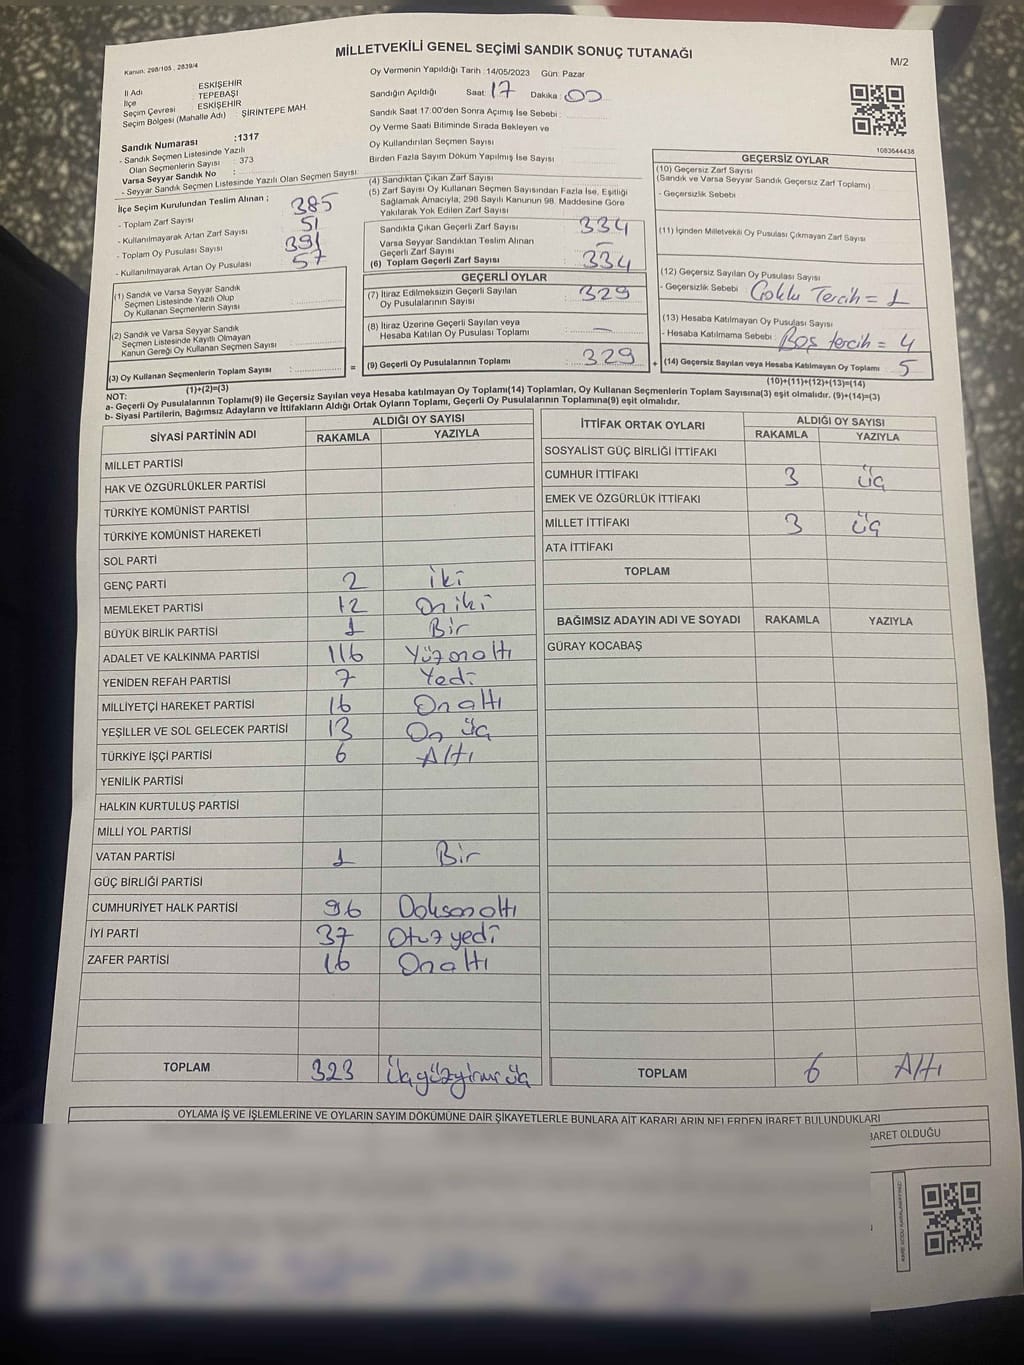 MİLLETVEKİLİ GENEL SEÇİMİ SANDIK SONUÇ TUTANAĞI
M/2
Kanun: 298/105 , 2839/4
İl Adı ESKİŞEHİR
İlçe TEPEBAŞI
Seçim Çevresi ESKİŞEHİR
Seçim Bölgesi (Mahalle Adı) ŞİRİNTEPE MAH.
Oy Vermenin Yapıldığı Tarih : 14/05/2023 Gün: Pazar
Sandığın Açıldığı Saat: 17 Dakika: 00
Sandık Saat 17:00'den Sonra Açımış İse Sebebi :
Oy Verme Saati Bitiminde Sırada Bekleyen ve
Oy Kullandırılan Seçmen Sayısı
Birden Fazla Sayım Döküm Yapılmış İse Sayısı
1083644438
Sandık Numarası :1317
- Sandık Seçmen Listesinde Yazılı
Olan Seçmenlerin Sayısı : 373
Varsa Seyyar Sandık No :
- Seyyar Sandık Seçmen Listesinde Yazılı Olan Seçmen Sayısı
İlçe Seçim Kurulundan Teslim Alınan ;
- Toplam Zarf Sayısı 385
- Kullanılmayarak Artan Zarf Sayısı 51
- Toplam Oy Pusulası Sayısı 391
- Kullanılmayarak Artan Oy Pusulası 57
(1) Sandık ve Varsa Seyyar Sandık
Seçmen Listesinde Yazılı Olup
Oy Kullanan Seçmenlerin Sayısı
(2) Sandık ve Varsa Seyyar Sandık
Seçmen Listesinde Kayıtlı Olmayan
Kanun Gereği Oy Kullanan Seçmen Sayısı
(3) Oy Kullanan Seçmenlerin Toplam Sayısı
(1)+(2)=(3)
(4) Sandıktan Çıkan Zarf Sayısı
(5) Zarf Sayısı Oy Kullanan Seçmen Sayısından Fazla İse, Eşitliği
Sağlamak Amacıyla, 298 Sayılı Kanunun 98. Maddesine Göre
Yakılarak Yok Edilen Zarf Sayısı
Sandıkta Çıkan Geçerli Zarf Sayısı 334
Varsa Seyyar Sandıktan Teslim Alınan
Geçerli Zarf Sayısı –
(6) Toplam Geçerli Zarf Sayısı 334
GEÇERLİ OYLAR
(7) İtiraz Edilmeksizin Geçerli Sayılan
Oy Pusulalarının Sayısı 329
(8) İtiraz Üzerine Geçerli Sayılan veya
Hesaba Katılan Oy Pusulası Toplamı –
= (9) Geçerli Oy Pusulalarının Toplamı 329 +
GEÇERSİZ OYLAR
(10) Geçersiz Zarf Sayısı
(Sandık ve Varsa Seyyar Sandık Geçersiz Zarf Toplamı)
- Geçersizlik Sebebi
(11) İçinden Milletvekili Oy Pusulası Çıkmayan Zarf Sayısı
(12) Geçersiz Sayılan Oy Pusulası Sayısı
- Geçersizlik Sebebi Çoklu Tercih = 1
(13) Hesaba Katılmayan Oy Pusulası Sayısı
- Hesaba Katılmama Sebebi : Boş tercih = 4
(14) Geçersiz Sayılan veya Hesaba Katılmayan Oy Toplamı 5
(10)+(11)+(12)+(13)=(14)
NOT:
a- Geçerli Oy Pusulalarının Toplamı(9) ile Geçersiz Sayılan veya Hesaba katılmayan Oy Toplamı(14) Toplamları, Oy Kullanan Seçmenlerin Toplam Sayısına(3) eşit olmalıdır. (9)+(14)=(3)
b- Siyasi Partilerin, Bağımsız Adayların ve İttifakların Aldığı Ortak Oyların Toplamı, Geçerli Oy Pusulalarının Toplamına(9) eşit olmalıdır.
SİYASİ PARTİNİN ADI ALDIĞI OY SAYISI
RAKAMLA YAZIYLA
MİLLET PARTİSİ
HAK VE ÖZGÜRLÜKLER PARTİSİ
TÜRKİYE KOMÜNİST PARTİSİ
TÜRKİYE KOMÜNİST HAREKETİ
SOL PARTİ
GENÇ PARTİ 2 iki
MEMLEKET PARTİSİ 12 On iki
BÜYÜK BİRLİK PARTİSİ 1 Bir
ADALET VE KALKINMA PARTİSİ 116 Yüzonaltı
YENİDEN REFAH PARTİSİ 7 Yedi
MİLLİYETÇİ HAREKET PARTİSİ 16 Onaltı
YEŞİLLER VE SOL GELECEK PARTİSİ 13 On üç
TÜRKİYE İŞÇİ PARTİSİ 6 Altı
YENİLİK PARTİSİ
HALKIN KURTULUŞ PARTİSİ
MİLLİ YOL PARTİSİ
VATAN PARTİSİ 1 Bir
GÜÇ BİRLİĞİ PARTİSİ
CUMHURİYET HALK PARTİSİ 96 Doksanaltı
İYİ PARTİ 37 Otuzyedi
ZAFER PARTİSİ 16 Onaltı
TOPLAM 323 Üçyüzyirmiüç
İTTİFAK ORTAK OYLARI ALDIĞI OY SAYISI
RAKAMLA YAZIYLA
SOSYALİST GÜÇ BİRLİĞİ İTTİFAKI
CUMHUR İTTİFAKI 3 üç
EMEK VE ÖZGÜRLÜK İTTİFAKI
MİLLET İTTİFAKI 3 üç
ATA İTTİFAKI
TOPLAM
BAĞIMSIZ ADAYIN ADI VE SOYADI RAKAMLA YAZIYLA
GÜRAY KOCABAŞ
TOPLAM 6 Altı
OYLAMA İŞ VE İŞLEMLERİNE VE OYLARIN SAYIM DÖKÜMÜNE DAİR ŞİKAYETLERLE BUNLARA AİT KARARLARIN NELERDEN İBARET BULUNDUKLARI
BARET OLDUĞU